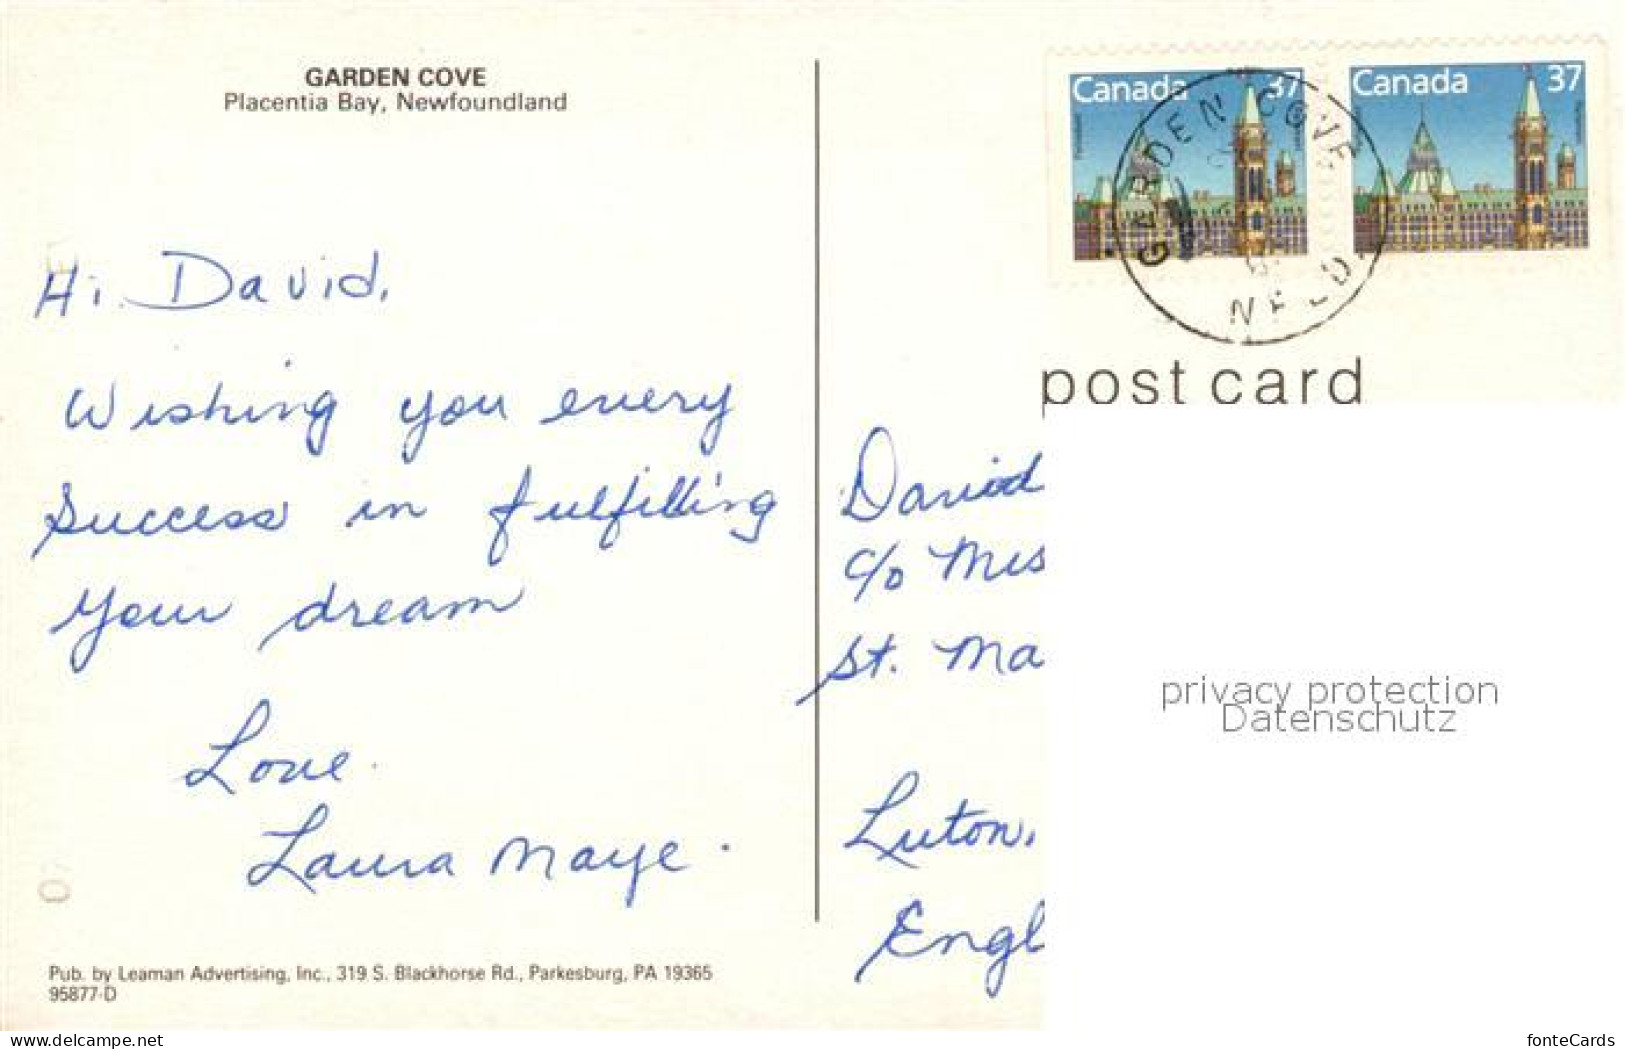 GARDEN COVE
Placentia Bay, Newfoundland
Canada 37
Canada 37
GARDEN COVE
NFLD.
post card
Hi. David,
Wishing you every
success in fulfilling
your dream
Love.
Laura Maye.
David
c/o Mrs
St. Ma
Luton,
Engl
privacy protection
Datenschutz
Pub. by Leaman Advertising, Inc., 319 S. Blackhorse Rd., Parkesburg, PA 19365
95877-D
www.delcampe.net
fonteCards